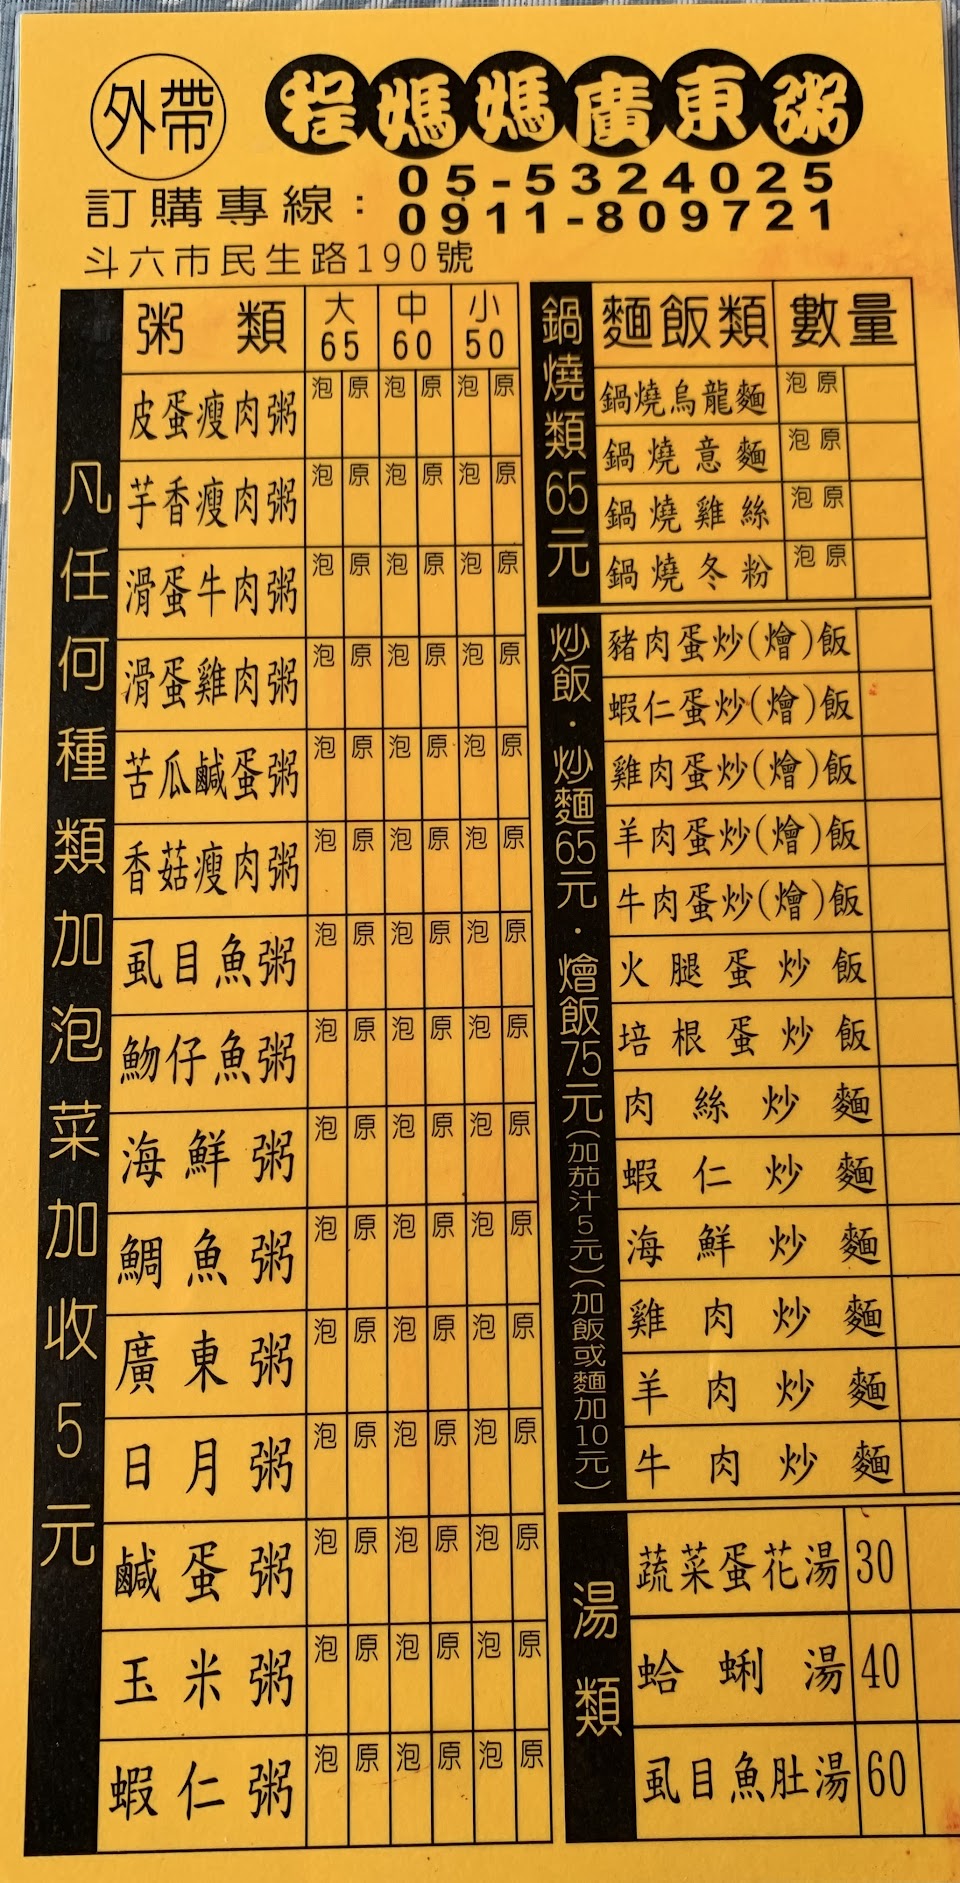 外帶
程媽媽廣東粥
訂購專線：
05-5324025
0911-809721
斗六市民生路190號
凡任何種類加泡菜加收5元
粥類 大65 中60 小50
皮蛋瘦肉粥 泡 原 泡 原 泡 原
芋香瘦肉粥 泡 原 泡 原 泡 原
滑蛋牛肉粥 泡 原 泡 原 泡 原
滑蛋雞肉粥 泡 原 泡 原 泡 原
苦瓜鹹蛋粥 泡 原 泡 原 泡 原
香菇瘦肉粥 泡 原 泡 原 泡 原
虱目魚粥 泡 原 泡 原 泡 原
魩仔魚粥 泡 原 泡 原 泡 原
海鮮粥 泡 原 泡 原 泡 原
鯛魚粥 泡 原 泡 原 泡 原
廣東粥 泡 原 泡 原 泡 原
日月粥 泡 原 泡 原 泡 原
鹹蛋粥 泡 原 泡 原 泡 原
玉米粥 泡 原 泡 原 泡 原
蝦仁粥 泡 原 泡 原 泡 原
鍋燒類65元
麵飯類 數量
鍋燒烏龍麵 泡 原
鍋燒意麵 泡 原
鍋燒雞絲 泡 原
鍋燒冬粉 泡 原
炒飯．炒麵65元．燴飯75元(加茄汁5元)(加飯或麵加10元)
豬肉蛋炒(燴)飯
蝦仁蛋炒(燴)飯
雞肉蛋炒(燴)飯
羊肉蛋炒(燴)飯
牛肉蛋炒(燴)飯
火腿蛋炒飯
培根蛋炒飯
肉絲炒麵
蝦仁炒麵
海鮮炒麵
雞肉炒麵
羊肉炒麵
牛肉炒麵
湯類
蔬菜蛋花湯 30
蛤蜊湯 40
虱目魚肚湯 60